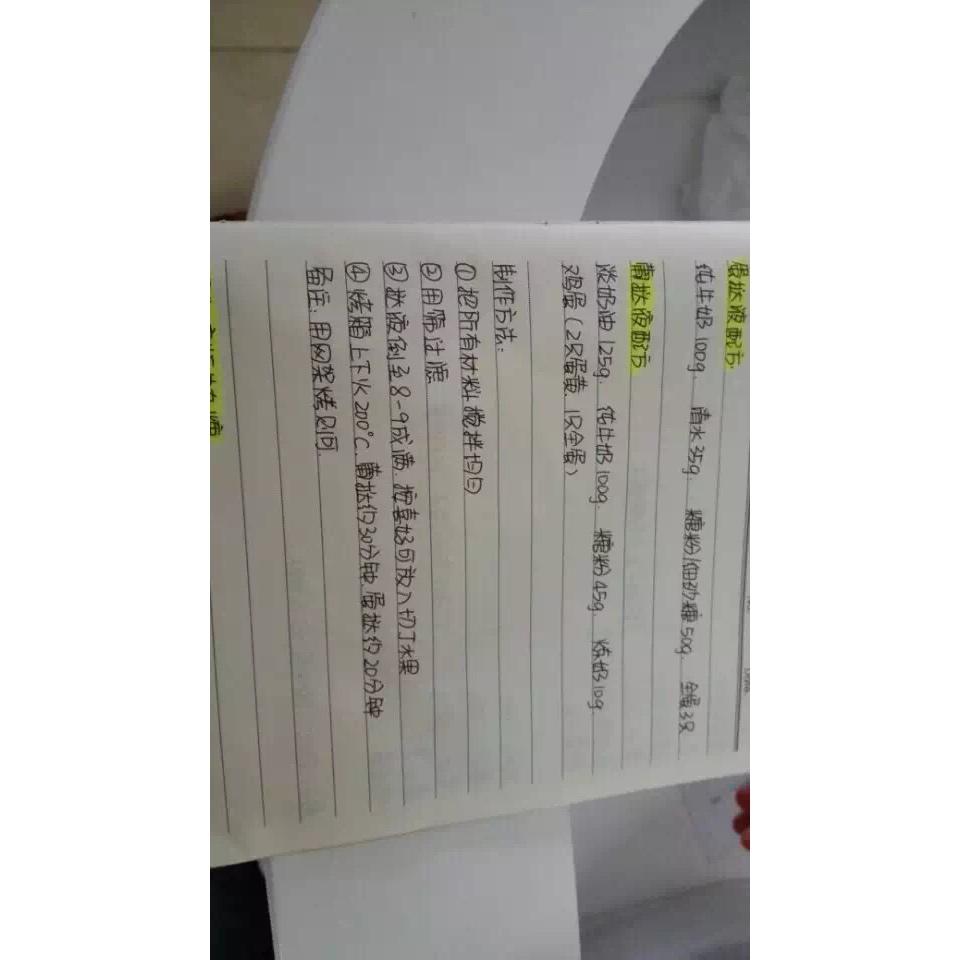 蛋挞液配方
纯牛奶100g. 清水35g. 糖粉/细砂糖50g. 全蛋3只
葡挞液配方
淡奶油125g. 纯牛奶100g. 糖粉45g. 炼奶10g.
鸡蛋(2只蛋黄.1只全蛋)
制作方法:
①把所有材料搅拌均匀
②用筛过滤
③挞液倒至8-9成满.按喜好可放入切丁水果
④烤箱上下火200°C.葡挞约30分钟.蛋挞约20分钟
备注:用网架烤则可.